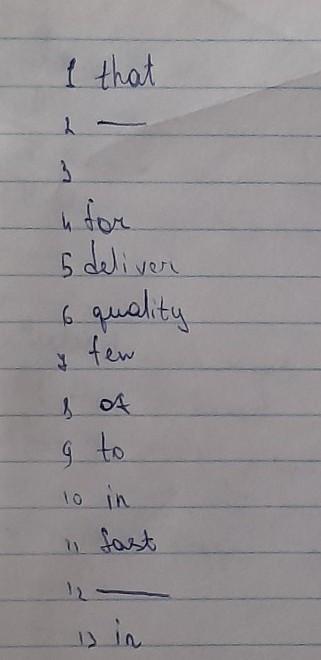 1 that
2 —
3
4 for
5 deliver
6 quality
7 few
8 of
9 to
10 in
11 fast
12 —
13 in